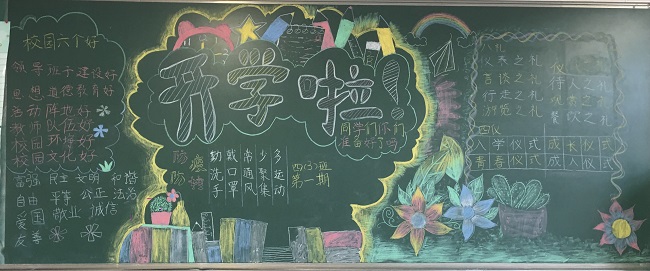 校园六个好
领导班子建设好
思想道德教育好
活动阵地好
教师队伍好
校园环境好
校园文化好
富强 民主 文明 和谐
自由 平等 公正 法治
爱国 敬业 诚信
友善
开学啦!
同学们你们
准备好了吗
防疫
防
勤洗手
戴口罩
常通风
少聚集
多运动
四(3)班
第一期
八礼
仪表之礼
言谈之礼
行走之礼
游览之礼
仪式之礼
待人之礼
观赏之礼
餐饮之礼
四仪
入学仪式 成长仪式
青春仪式 成人仪式